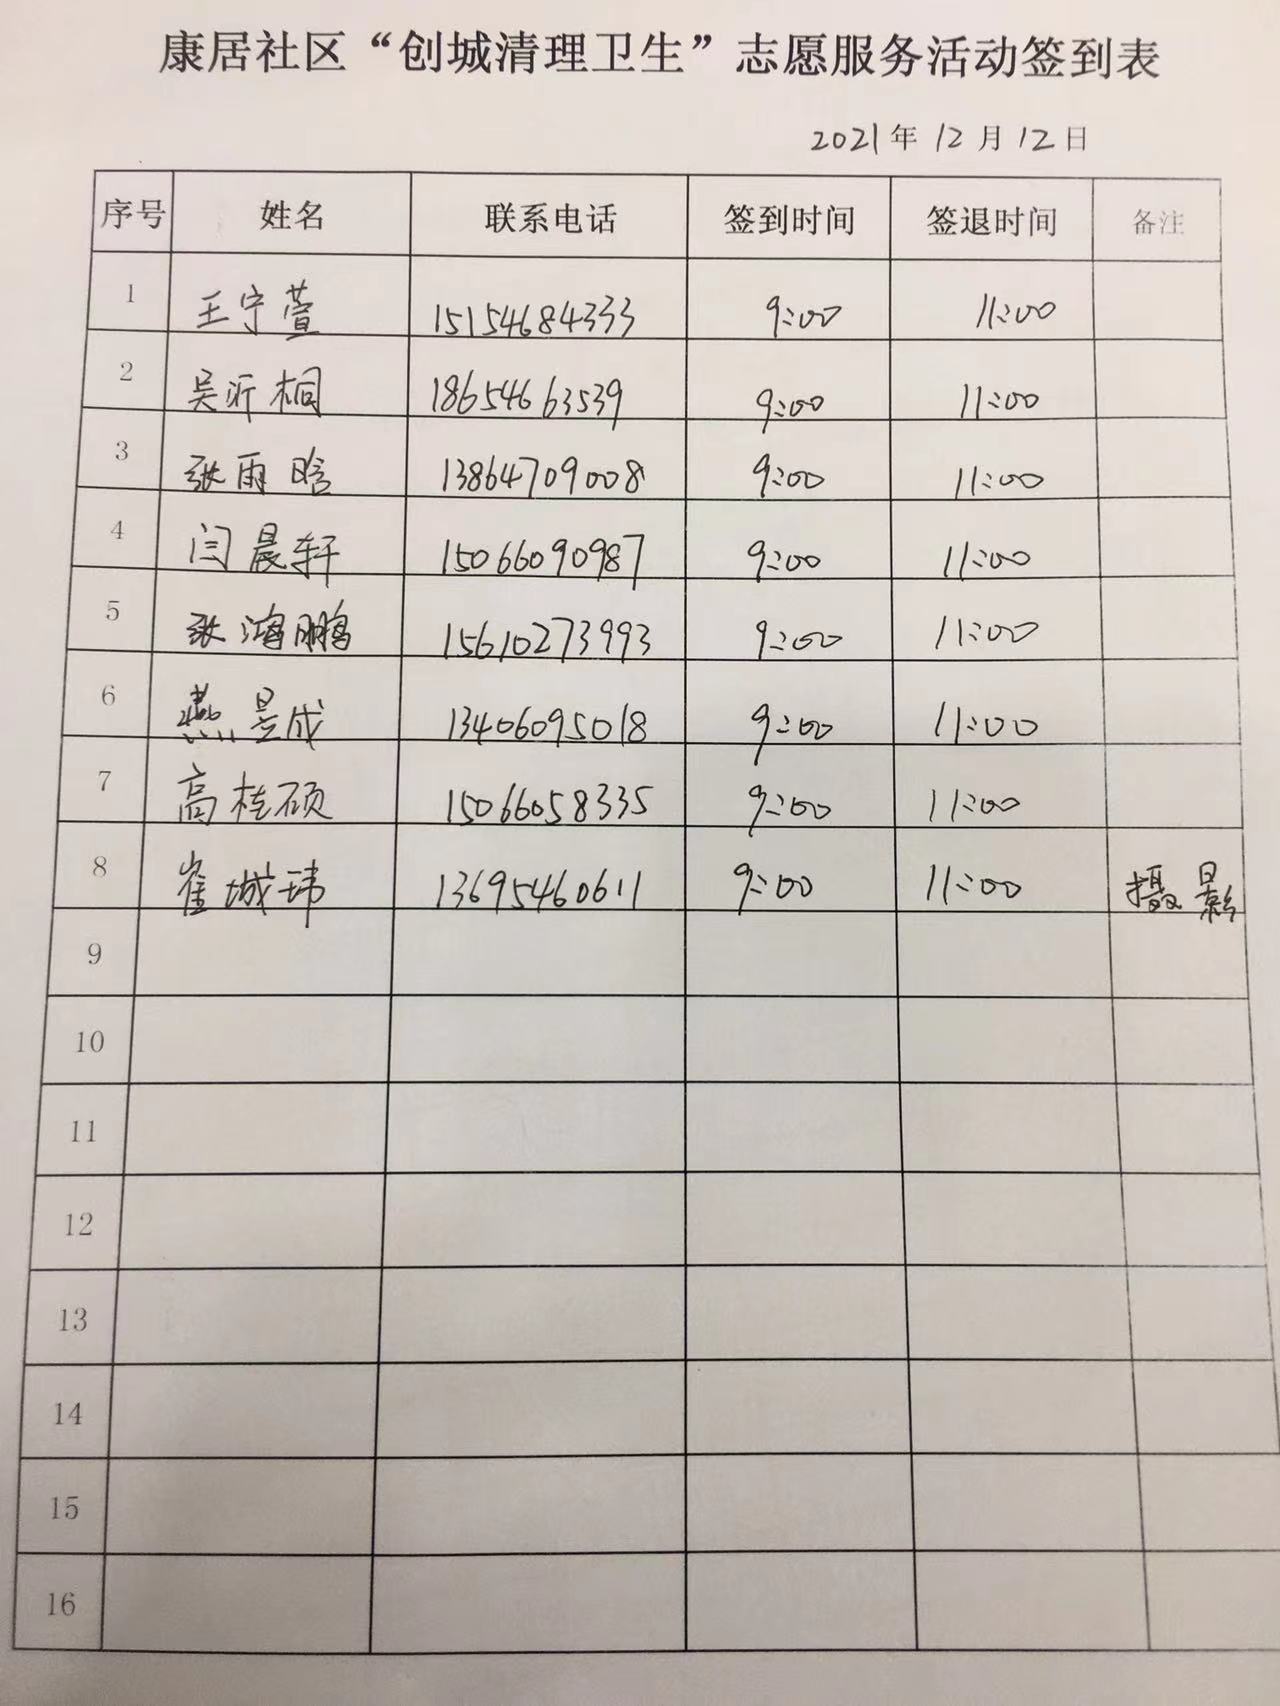 康居社区“创城清理卫生”志愿服务活动签到表
2021年12月12日
序号 姓名 联系电话 签到时间 签退时间 备注
1 王宁萱 15154684333 9:00 11:00
2 吴沂桐 18654663539 9:00 11:00
3 张雨晗 13864709008 9:00 11:00
4 闫晨轩 15066090987 9:00 11:00
5 张鸿鹏 15610273993 9:00 11:00
6 燕昱成 13406095018 9:00 11:00
7 高桂硕 15066058335 9:00 11:00
8 崔城玮 13695460611 9:00 11:00 摄影
9
10
11
12
13
14
15
16